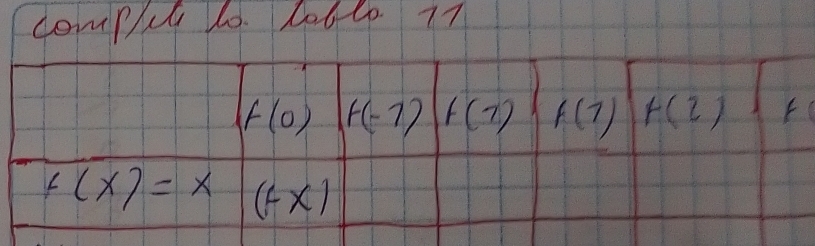 complete la tabla 11
f(0) f(-1) f(1) f(1) f(2) f(
f(x) = x (fx)